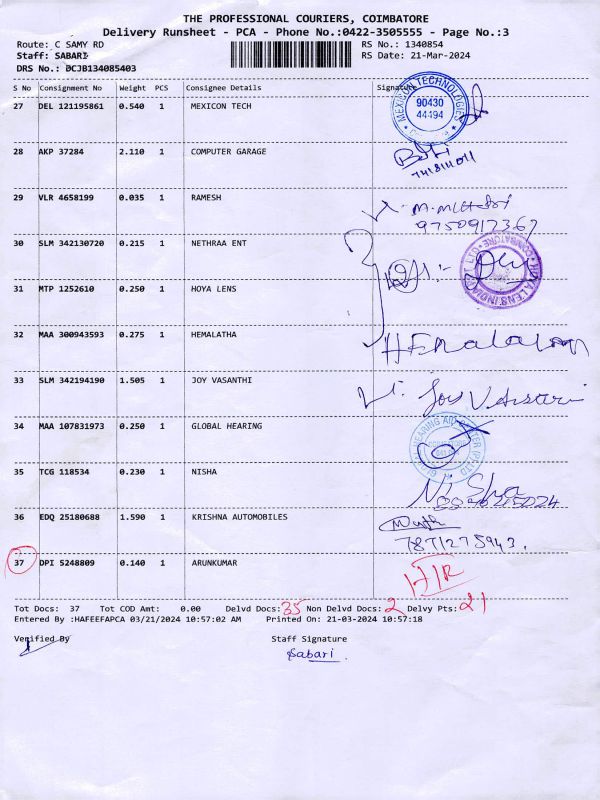 THE PROFESSIONAL COURIERS, COIMBATORE
Delivery Runsheet - PCA - Phone No.:0422-3505555 - Page No.:3
Route: C SAMY RD RS No.: 1340854
Staff: SABARI RS Date: 21-Mar-2024
DRS No.: DCJB134085403
S No Consignment No Weight PCS Consignee Details Signature
27 DEL 121195861 0.540 1 MEXICON TECH
MEXICON TECHNOLOGIES
90430
44194
28 AKP 37284 2.110 1 COMPUTER GARAGE
29 VLR 4658199 0.035 1 RAMESH
9750917367
30 SLM 342130720 0.215 1 NETHRAA ENT
31 MTP 1252610 0.250 1 HOYA LENS
32 MAA 300943593 0.275 1 HEMALATHA
HEmalatha
33 SLM 342194190 1.505 1 JOY VASANTHI
34 MAA 107831973 0.250 1 GLOBAL HEARING
35 TCG 118534 0.230 1 NISHA
Nisha
36 EDQ 25180688 1.590 1 KRISHNA AUTOMOBILES
7871275943.
37 DPI 5248809 0.140 1 ARUNKUMAR
Tot Docs: 37 Tot COD Amt: 0.00 Delvd Docs: 35 Non Delvd Docs: 2 Delvy Pts: 21
Entered By :HAFEEFAPCA 03/21/2024 10:57:02 AM Printed On: 21-03-2024 10:57:18
Verified By Staff Signature
Sabari